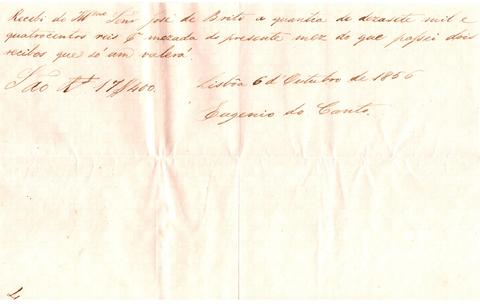 Recebi do Illmo Senr José de Brito a quantia de dezasete mil e
quatrocentos reis q mezada do presente mez do que passei dois
recibos que só um valerá.
São Rs 17$400. Lisbôa 6 d Outubro de 1856
Eugenio do Canto.